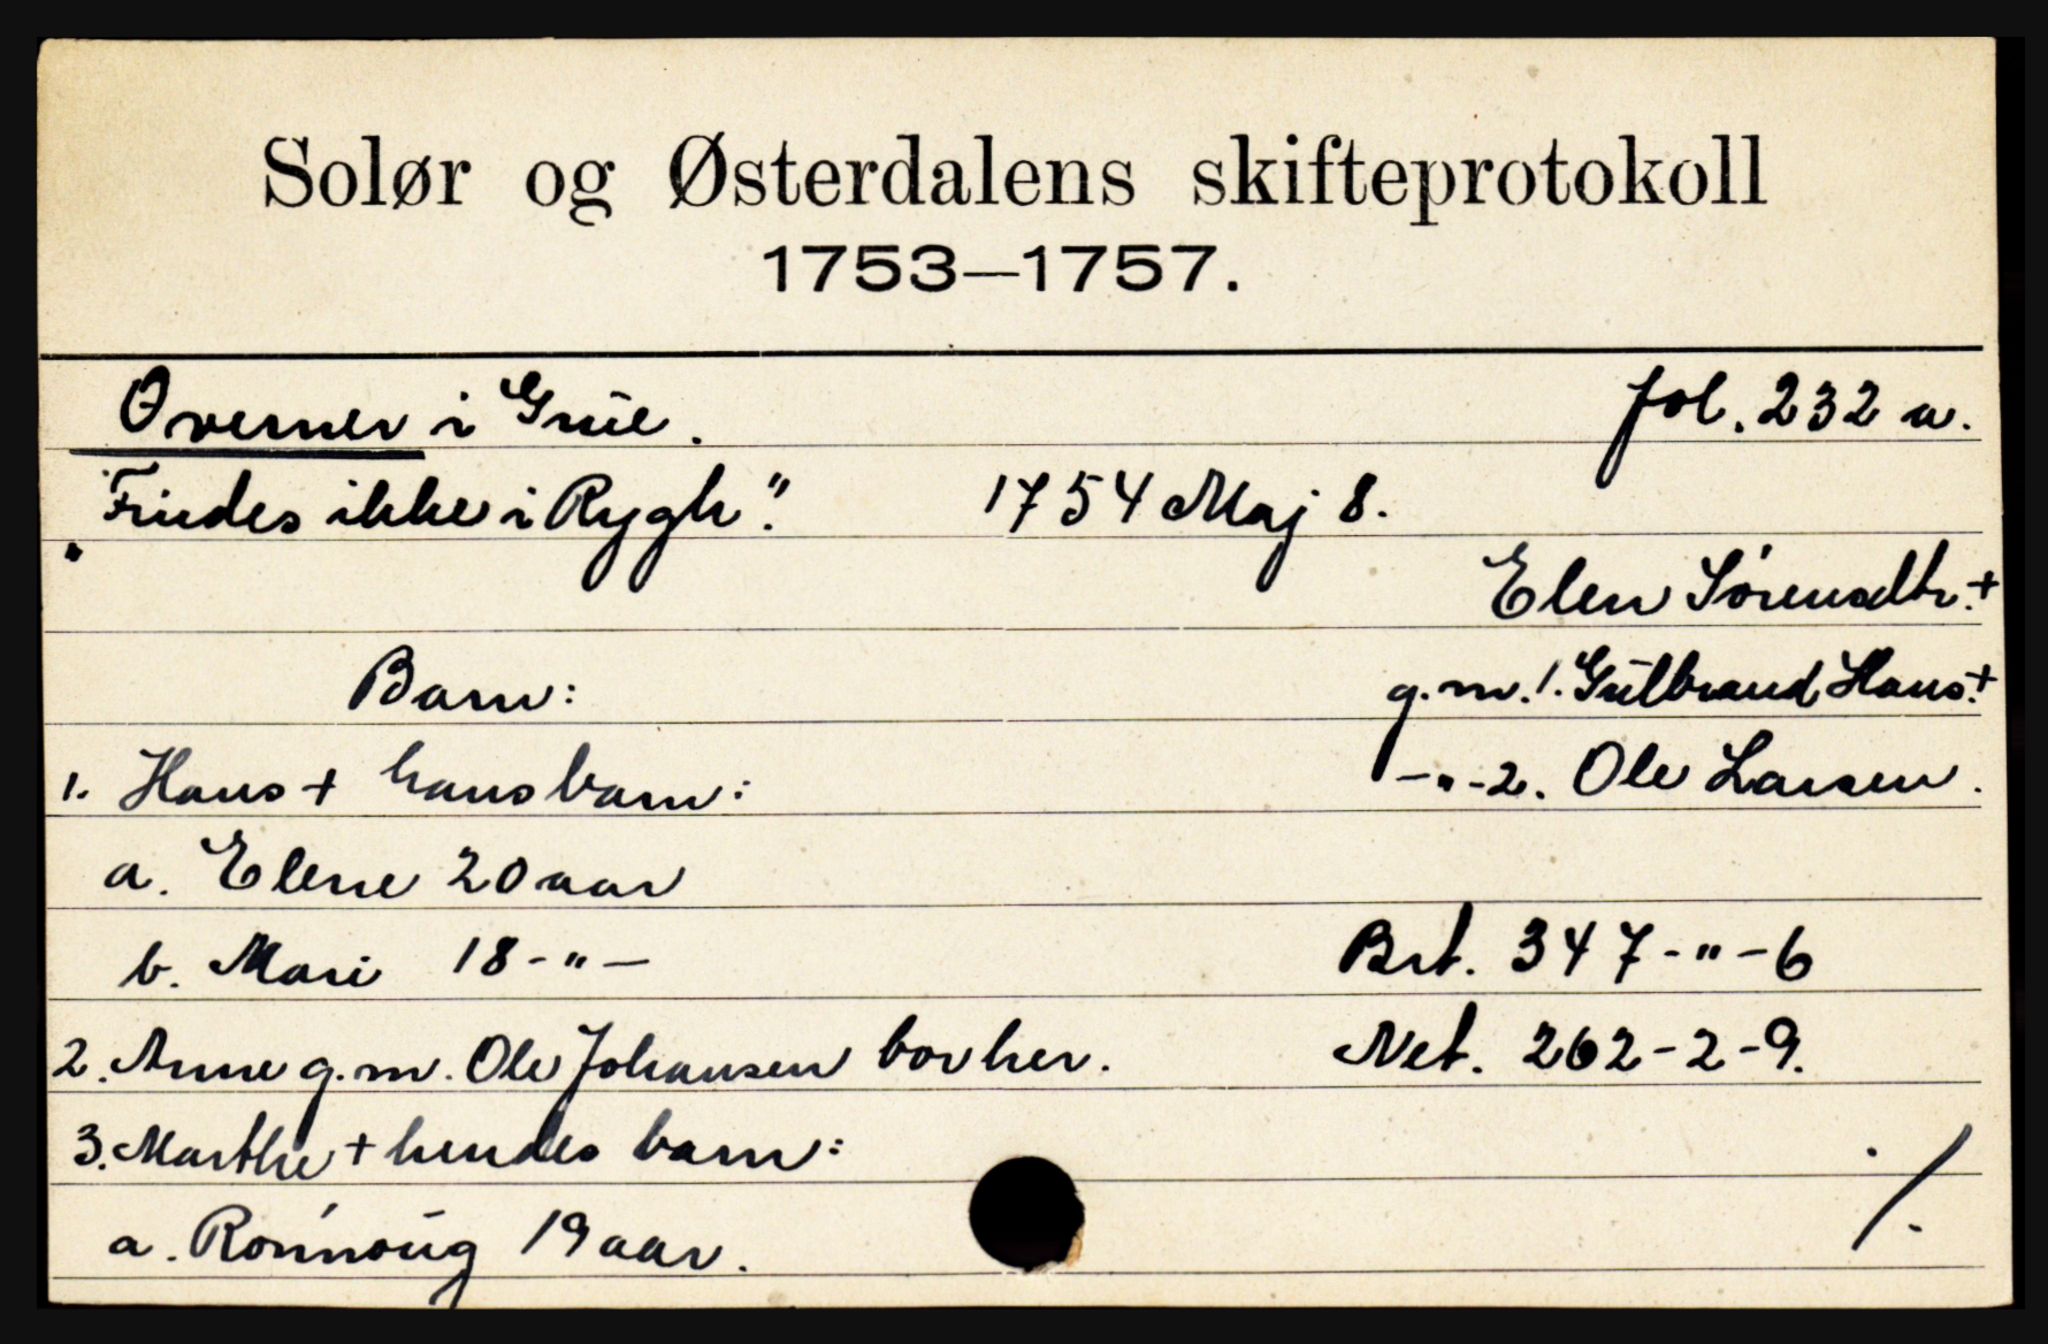 Solør og Østerdalens skifteprotokoll
1753—1757.
Overnes i Grue. fol. 232 a.
„Findes ikke i Rygh". 1754 Maj 8.
Elen Sörensdtr. +
Barn: g. m. 1. Gulbrand Hans. +
1. Hans + hans barn: -"- 2. Ole Larsen.
a. Elene 20 aar
b. Mari 18 -"- Brt. 347-"-6
2. Anne g. m. Ole Johansen bor her. Net. 262-2-9.
3. Marthe + hendes barn:
a. Rönnoug 19 aar. ./.